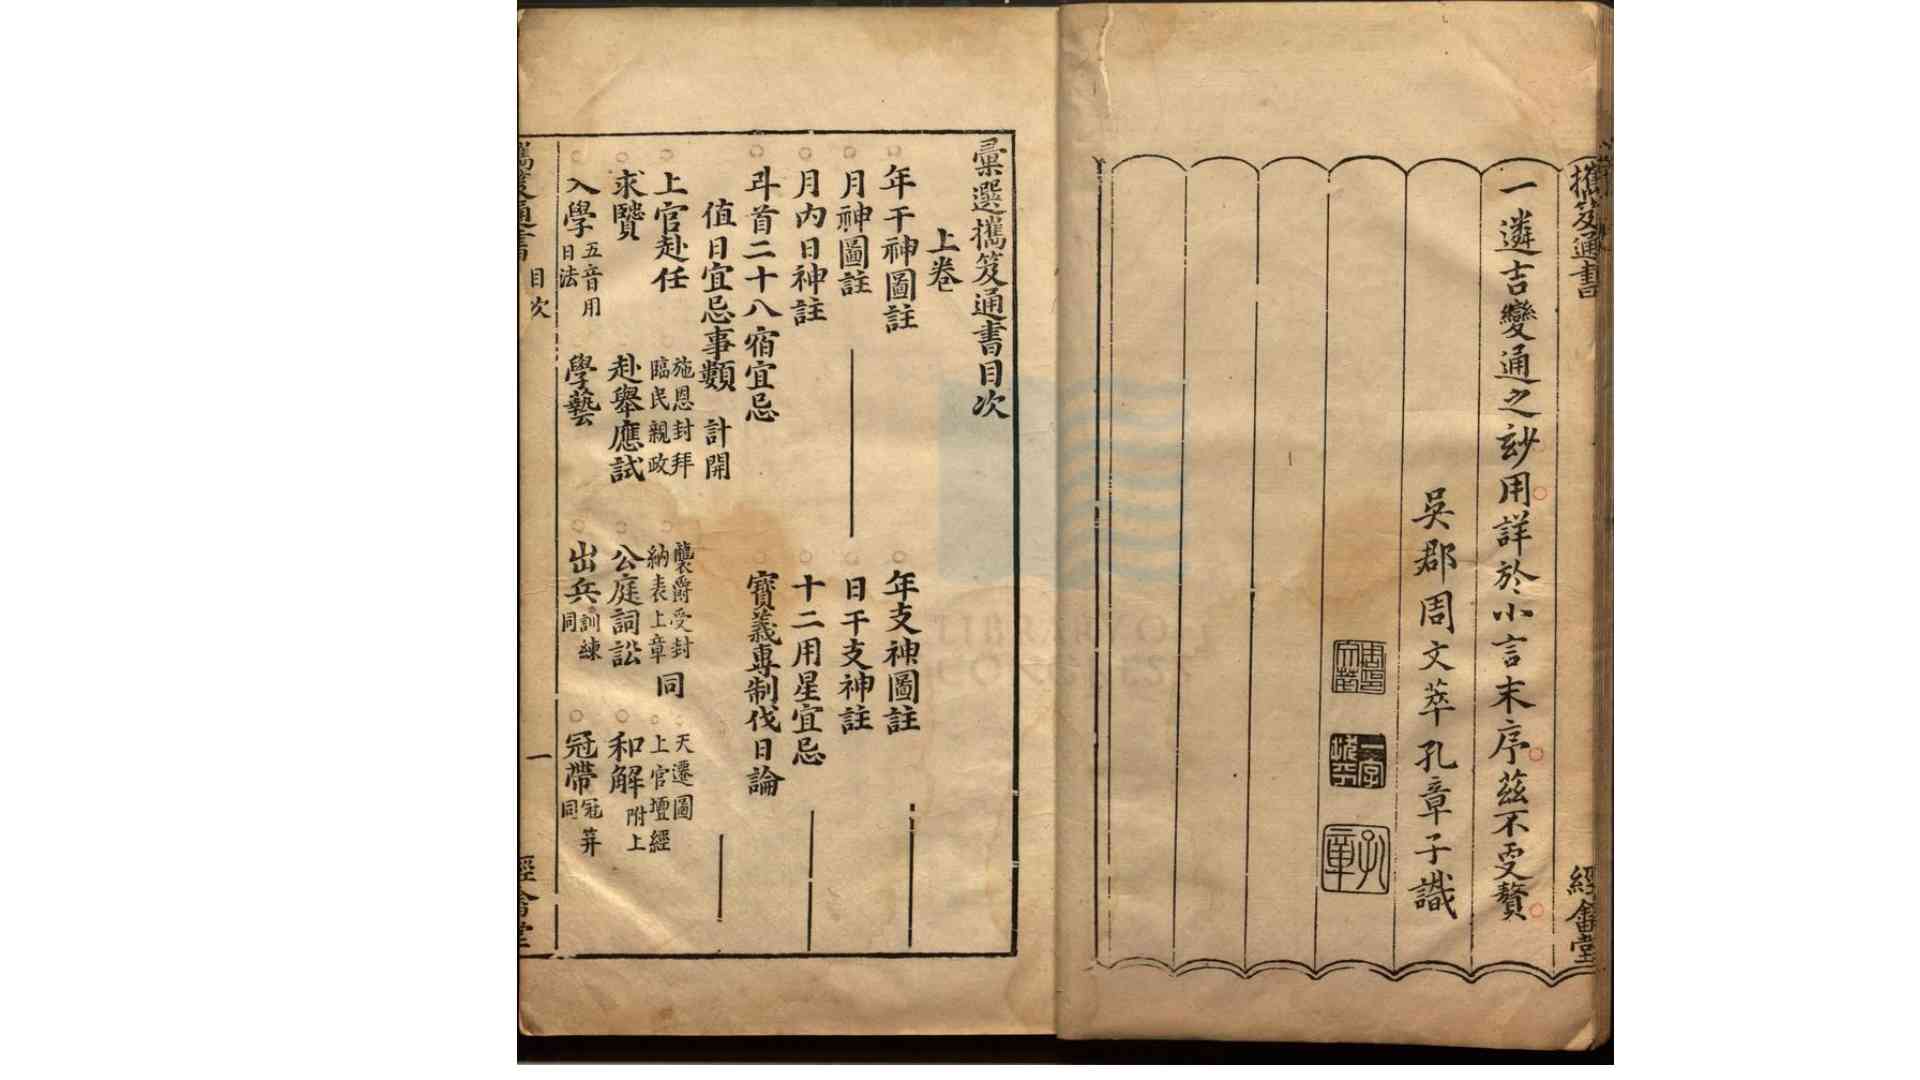 攜笈通書
經 堂
一遴吉變通之玅用詳於小言末序茲不叓贅
吳郡周文萃孔章子識
周印文萃
孔章
彙選攜笈通書目次
上卷
年干神圖註 年支神圖註
月神圖註 日干支神註
月內日神註 十二用星宜忌
斗首二十八宿宜忌 寶義專制伐日論
值日宜忌事類 計開
上官赴任 施恩封拜 臨民親政 襲爵受封 納表上章 同 天遷圖 上官壇經
求賢 赴舉應試 公庭詞訟 和解 附上
入學 五音用日法 學藝 出兵 訓練同 冠帶 冠笄同
攜笈通書 目次 一